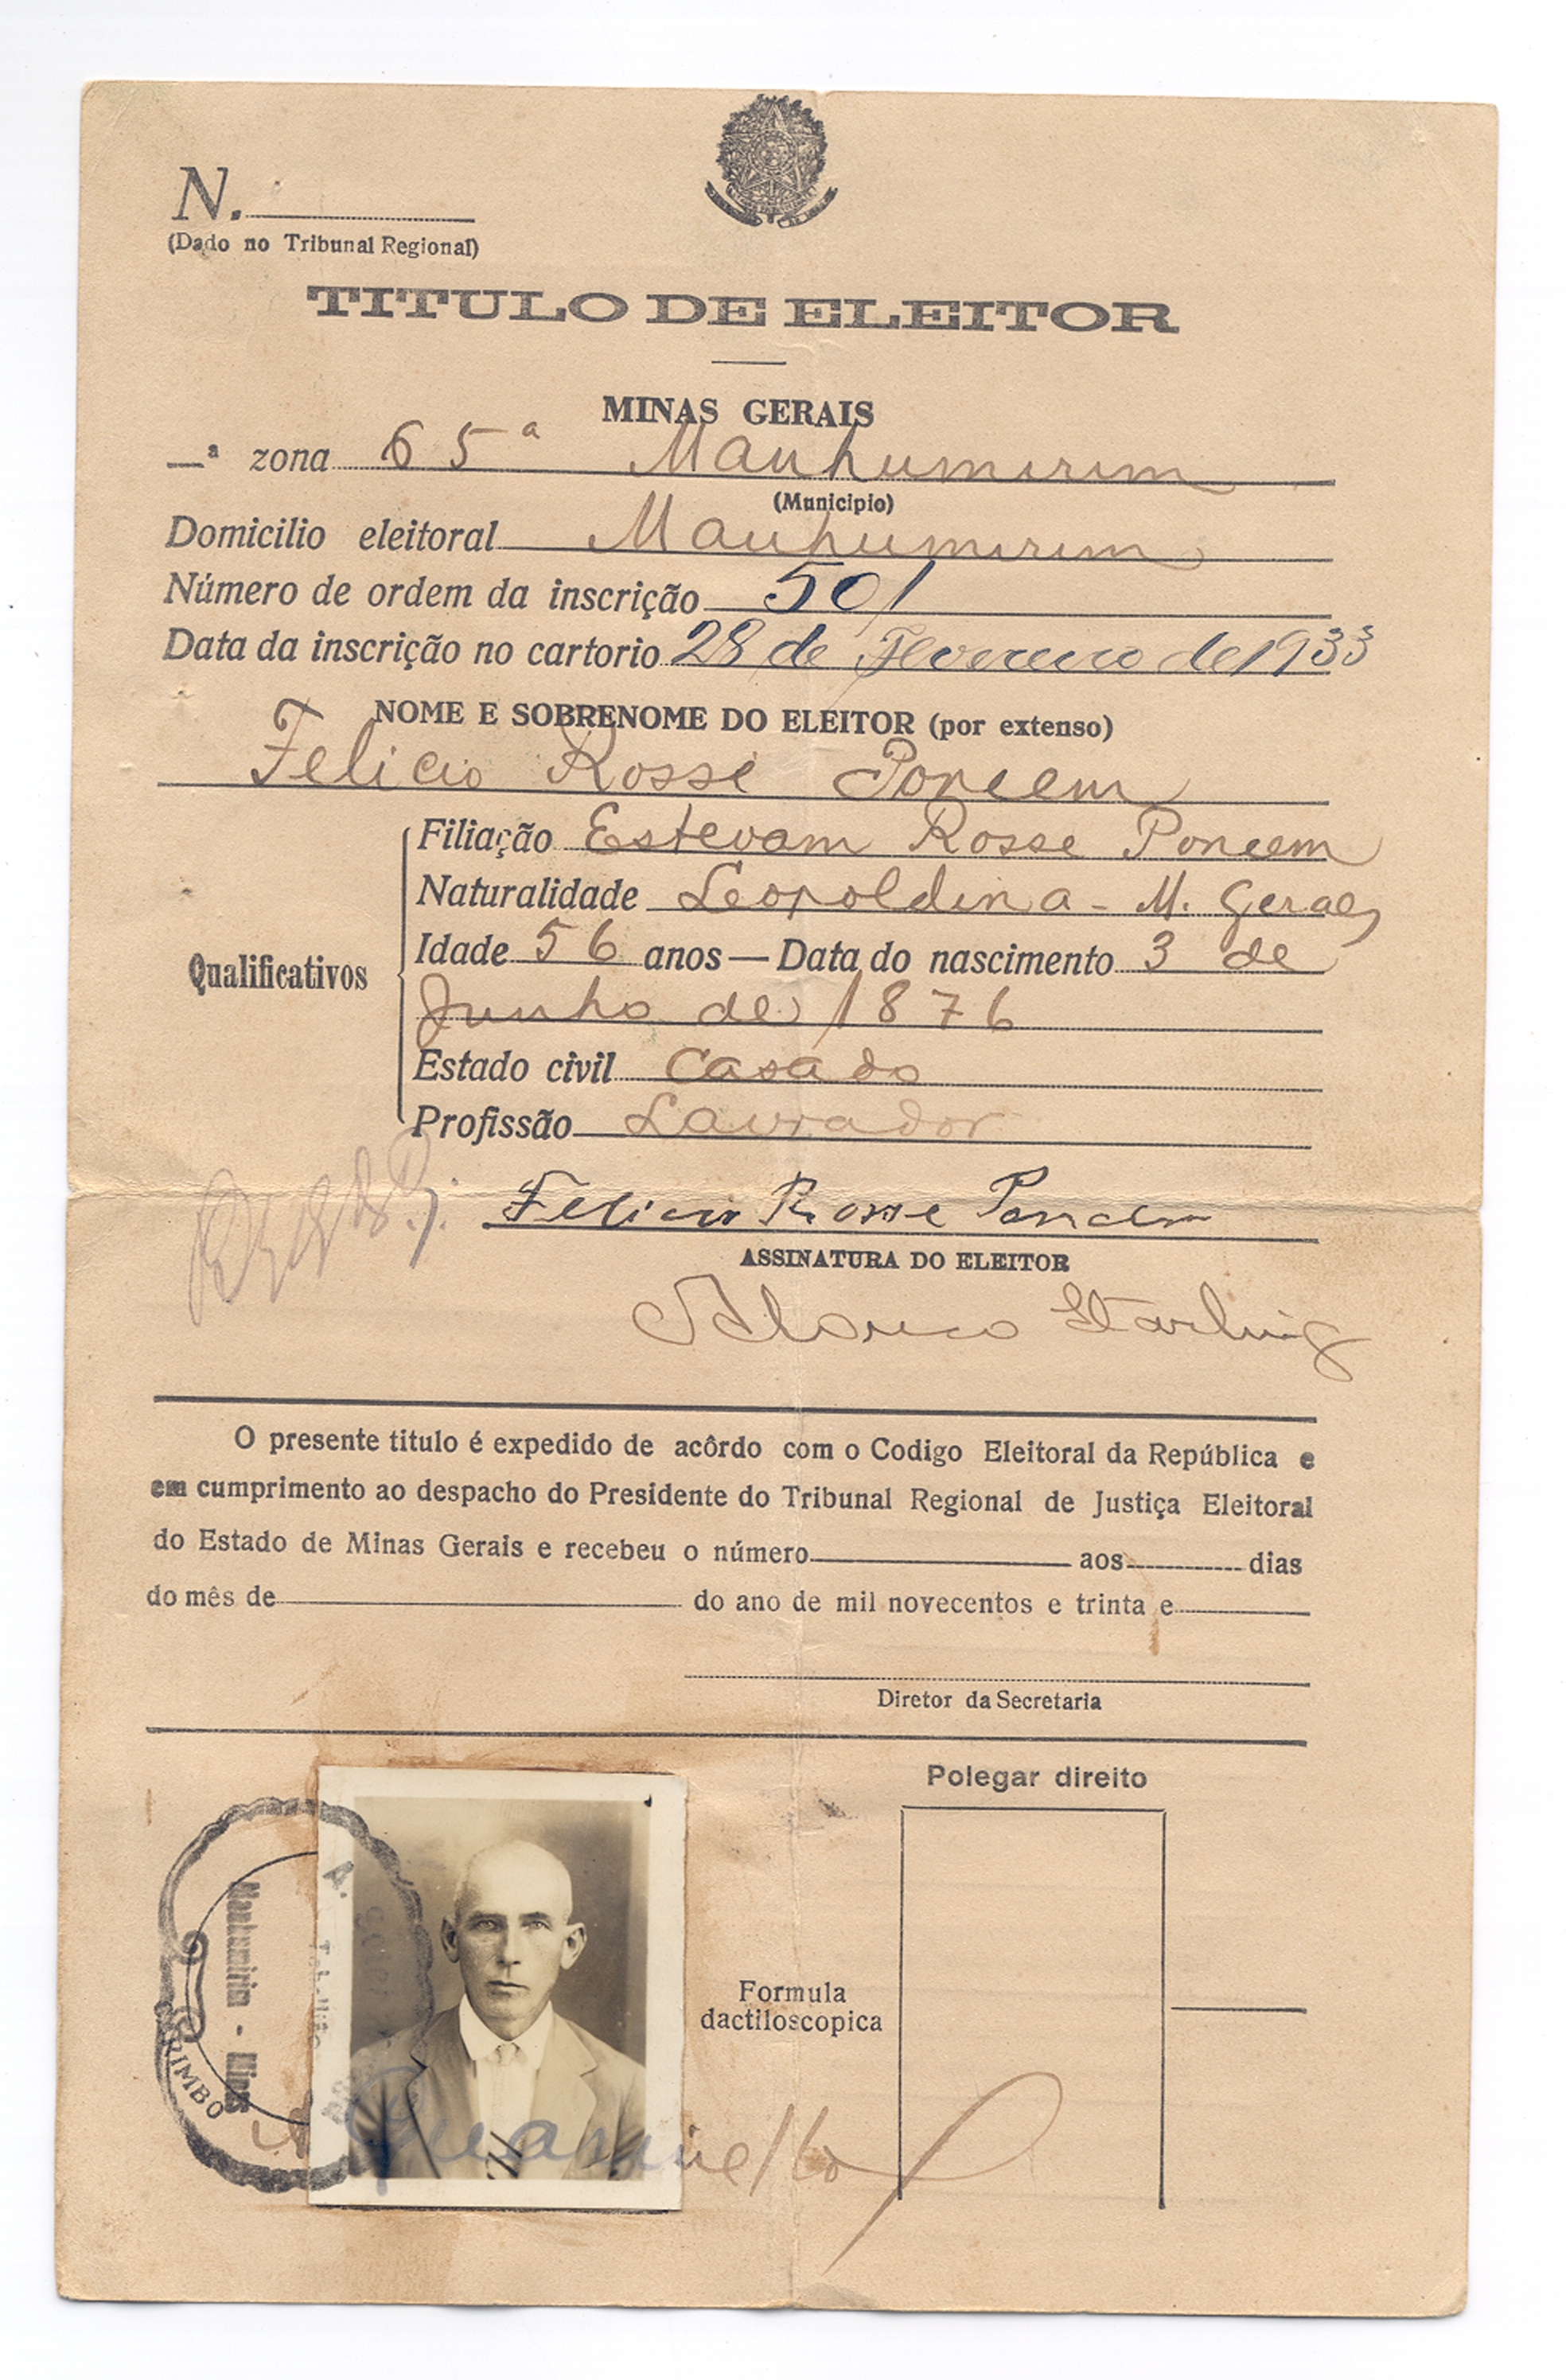 N.
(Dado no Tribunal Regional)
TITULO DE ELEITOR
MINAS GERAIS
ª zona 65ª Manhumirim
(Municipio)
Domicilio eleitoral Manhumirim
Número de ordem da inscrição 501
Data da inscrição no cartorio 28 de Fevereiro de 1933
NOME E SOBRENOME DO ELEITOR (por extenso)
Felicio Rosse Poncem
Filiação Estevam Rosse Poncem
Naturalidade Leopoldina - M. Geraes
Qualificativos
Idade 56 anos — Data do nascimento 3 de
Junho de 1876
Estado civil Casado
Profissão Lavrador
Felicio Rosse Poncem
ASSINATURA DO ELEITOR
Starling
O presente titulo é expedido de acôrdo com o Codigo Eleitoral da República e
em cumprimento ao despacho do Presidente do Tribunal Regional de Justiça Eleitoral
do Estado de Minas Gerais e recebeu o número aos dias
do mês de do ano de mil novecentos e trinta e
Diretor da Secretaria
Polegar direito
Formula
dactiloscopica
A.
Manhumirim - Minas
CARIMBO